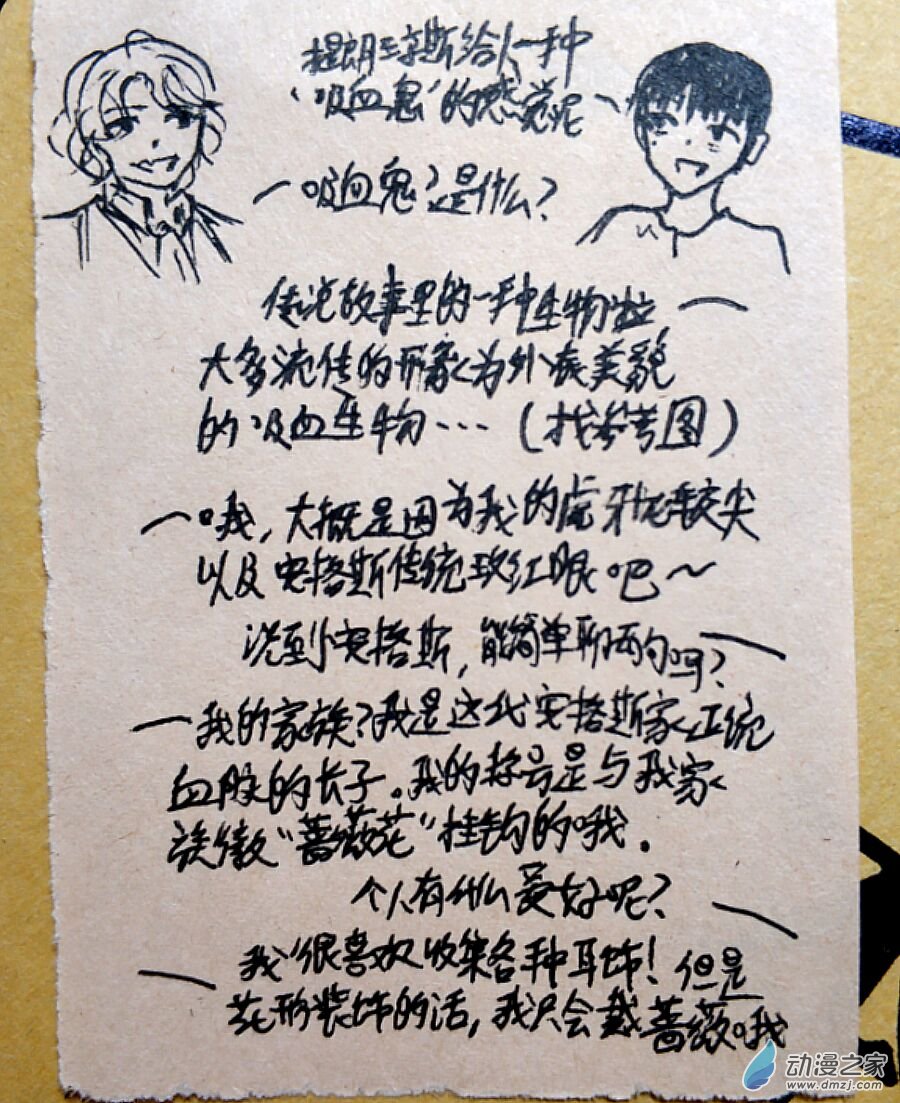 提朗三辛斯给人一种
“吸血鬼”的感觉呢
吸血鬼？是什么？
传说故事里的一种生物啦，
大多流传的形象为外表美貌
的吸血生物…（找参考图）
哦，大概是因为我的虎牙比较尖
以及安格斯传统玫红眼吧～
说到安格斯，能简单聊两句吗？
我的家族？我是这代安格斯家正统
血脉的长子。我的称号是与我家
族徽“蔷薇花”挂钩的哦．
个人有什么爱好呢？
我很喜欢收集各种耳饰！但是
花形装饰的话，我只会戴蔷薇哦
动漫之家
www.dmzj.com